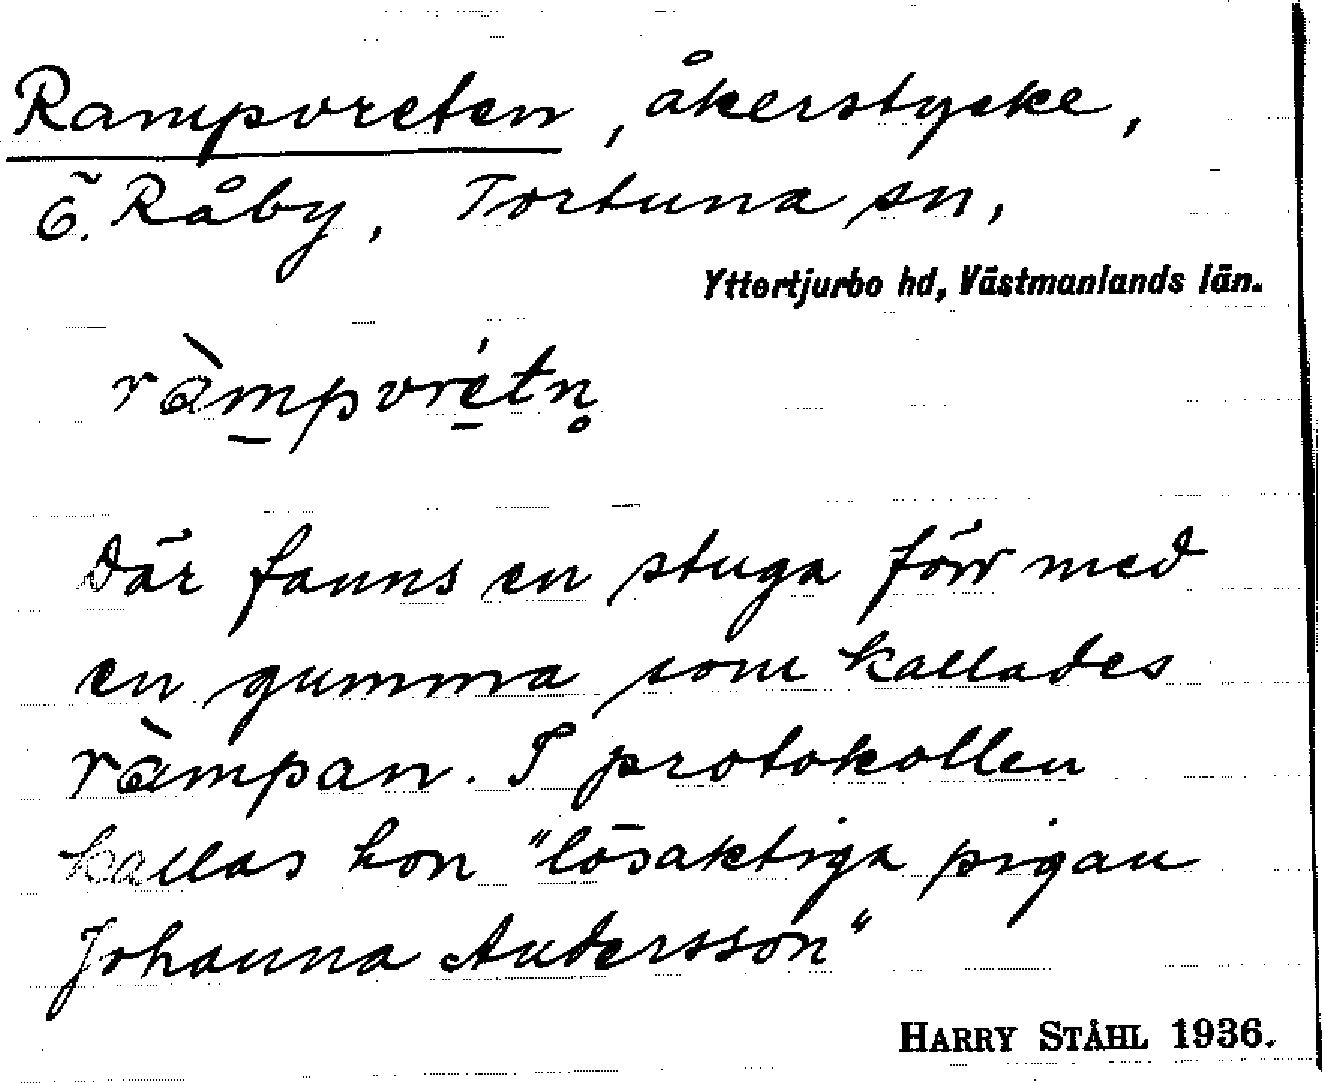 Rampvreten, åkerstycke,
Ö. Råby, Tortuna sn,
Yttertjurbo hd, Västmanlands län.
ràmpvrétn̥
Där fanns en stuga förr med
en gumma som kallades
ràmpan. I protokollen
kallas hon "lösaktiga pigan
Johanna Andersson"
HARRY STÅHL 1936.